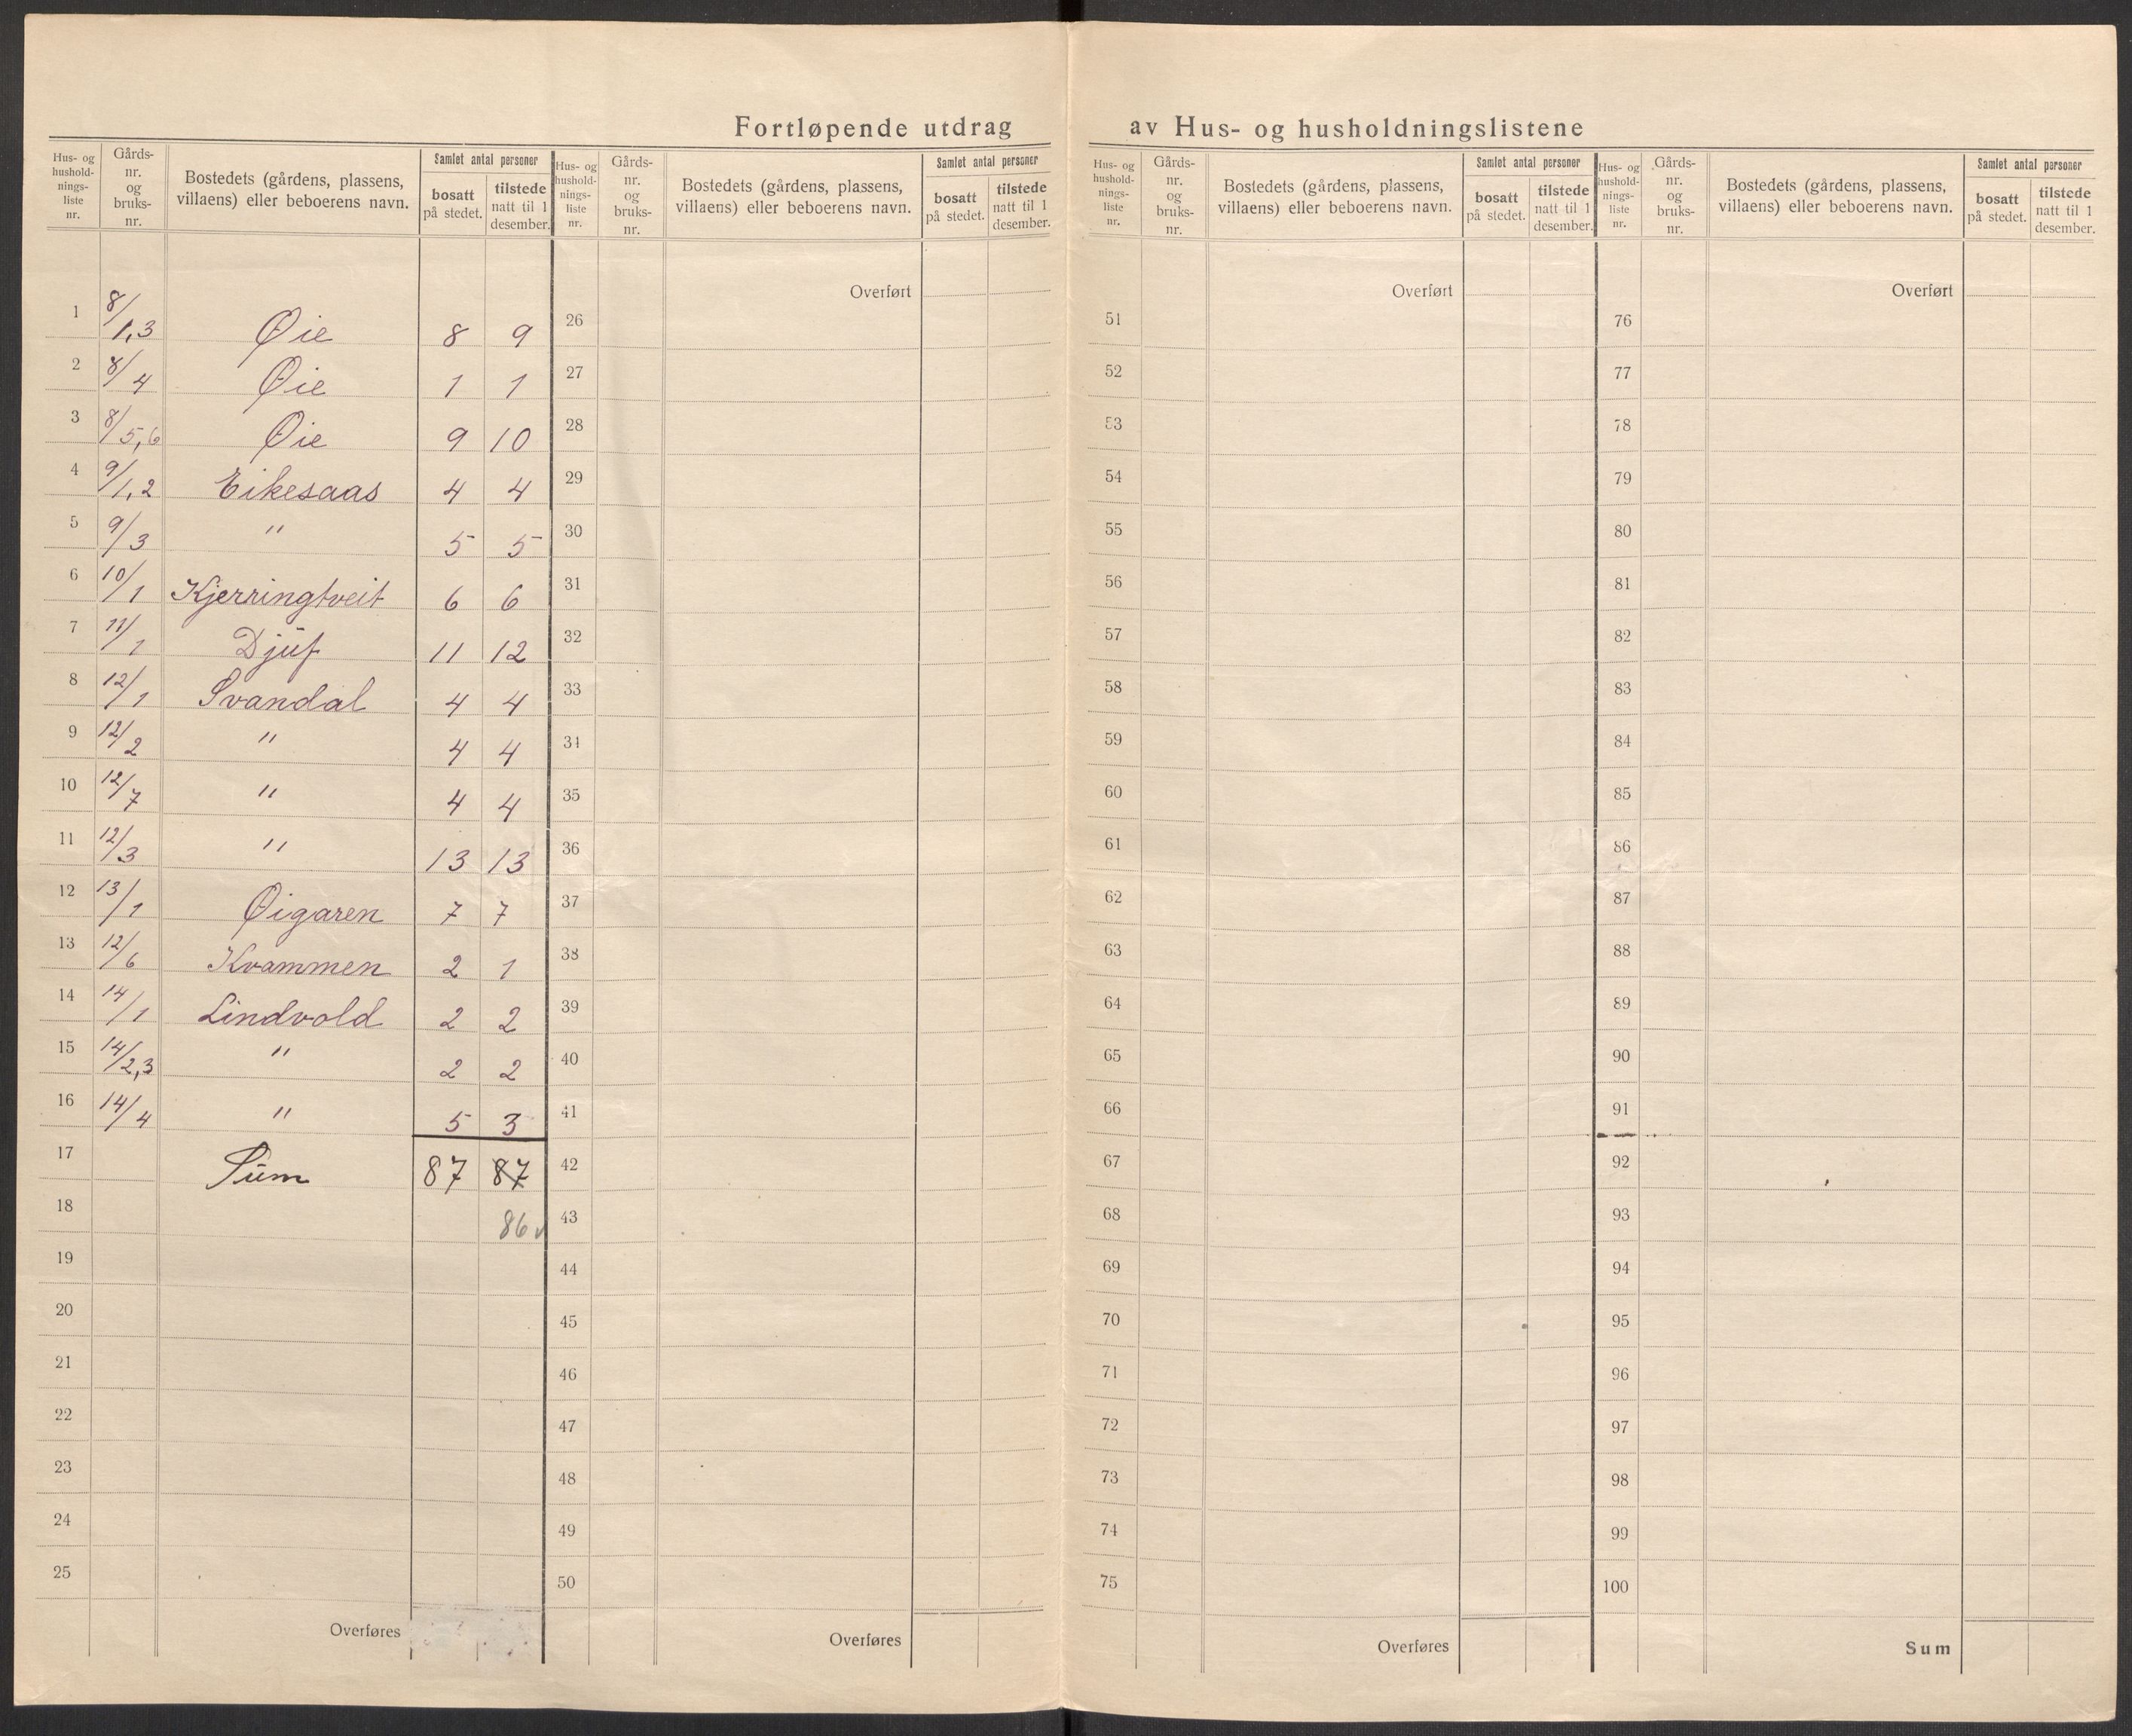 Fortløpende utdrag av Hus- og husholdningslistene
Hus- og hushold-nings-liste nr. Gårds-nr. og bruks-nr. Bostedets (gårdens, plassens, villaens) eller beboerens navn. Samlet antal personer bosatt på stedet. tilstede natt til 1 desember.
1 8/1,3 Øie 8 9
2 8/4 Øie 1 1
3 8/5,6 Øie 9 10
4 9/1,2 Eikesaas 4 4
5 9/3 " 5 5
6 10/1 Kjerringtveit 6 6
7 11/1 Djuf 11 12
8 12/1 Svandal 4 4
9 12/2 " 4 4
10 12/7 " 4 4
11 12/3 " 13 13
12 13/1 Øigaren 7 7
13 12/6 Kvammen 2 1
14 14/1 Lindvold 2 2
15 14/2,3 " 2 2
16 14/4 " 5 3
17 Sum 87 87
18 86 ✓
19
20
21
22
23
24
25
Overføres
Hus- og hushold-nings-liste nr. Gårds-nr. og bruks-nr. Bostedets (gårdens, plassens, villaens) eller beboerens navn. Samlet antal personer bosatt på stedet. tilstede natt til 1 desember.
Overført
26
27
28
29
30
31
32
33
34
35
36
37
38
39
40
41
42
43
44
45
46
47
48
49
50
Overføres
Hus- og hushold-nings-liste nr. Gårds-nr. og bruks-nr. Bostedets (gårdens, plassens, villaens) eller beboerens navn. Samlet antal personer bosatt på stedet. tilstede natt til 1 desember.
Overført
51
52
53
54
55
56
57
58
59
60
61
62
63
64
65
66
67
68
69
70
71
72
73
74
75
Overføres
Hus- og hushold-nings-liste nr. Gårds-nr. og bruks-nr. Bostedets (gårdens, plassens, villaens) eller beboerens navn. Samlet antal personer bosatt på stedet. tilstede natt til 1 desember.
Overført
76
77
78
79
80
81
82
83
84
85
86
87
88
89
90
91
92
93
94
95
96
97
98
99
100
Sum